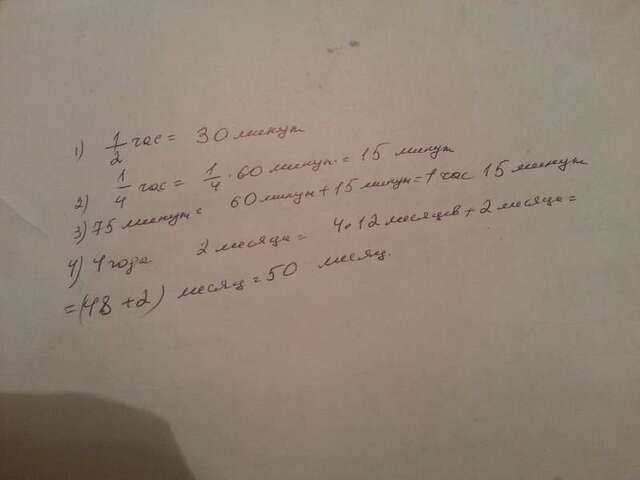 1) 1/2 час = 30 минут
2) 1/4 час = 1/4 · 60 минут = 15 минут
3) 75 минут = 60 минут + 15 минут = 1 час 15 минут
4) 4 года 2 месяца = 4 · 12 месяцев + 2 месяца =
= (48 + 2) месяц = 50 месяц.